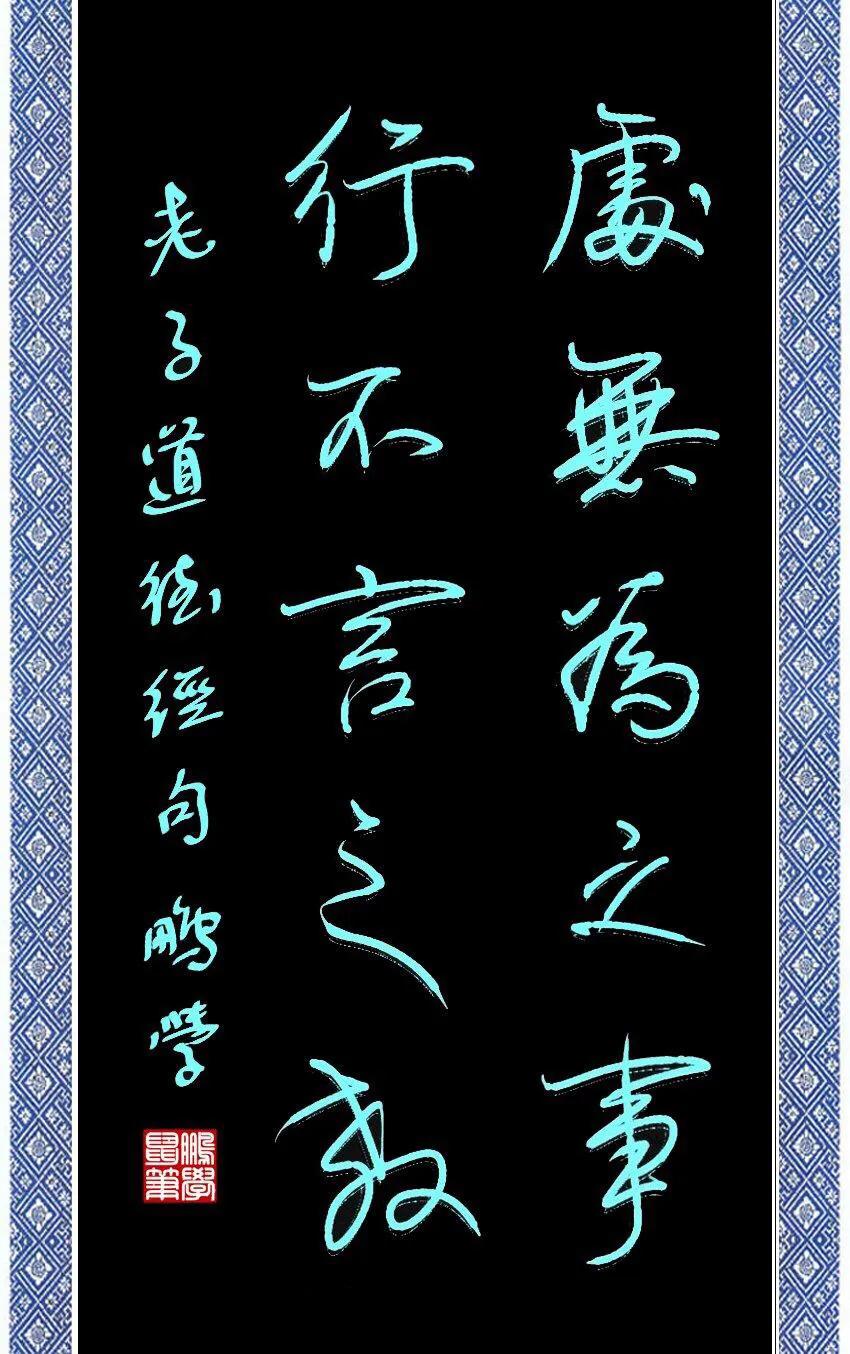 處無為之事
行不言之教
老子道德經句鵬學
鵬學鼠筆